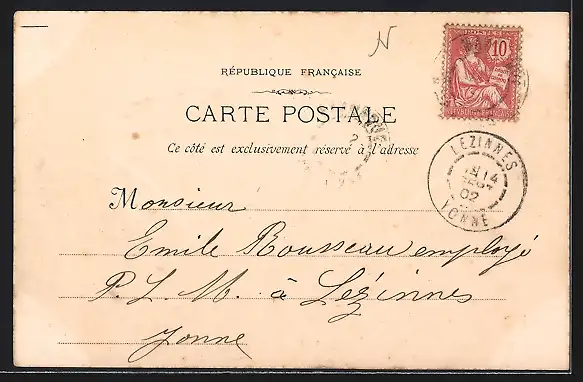 N
POSTES
10
RÉPUBLIQUE FRANÇAISE
CARTE POSTALE
Ce côté est exclusivement réservé à l'adresse
LEZINNES
14
02
YONNE
Monsieur
Emile Rousseau employé
P. L. M. à Lézinnes
Yonne